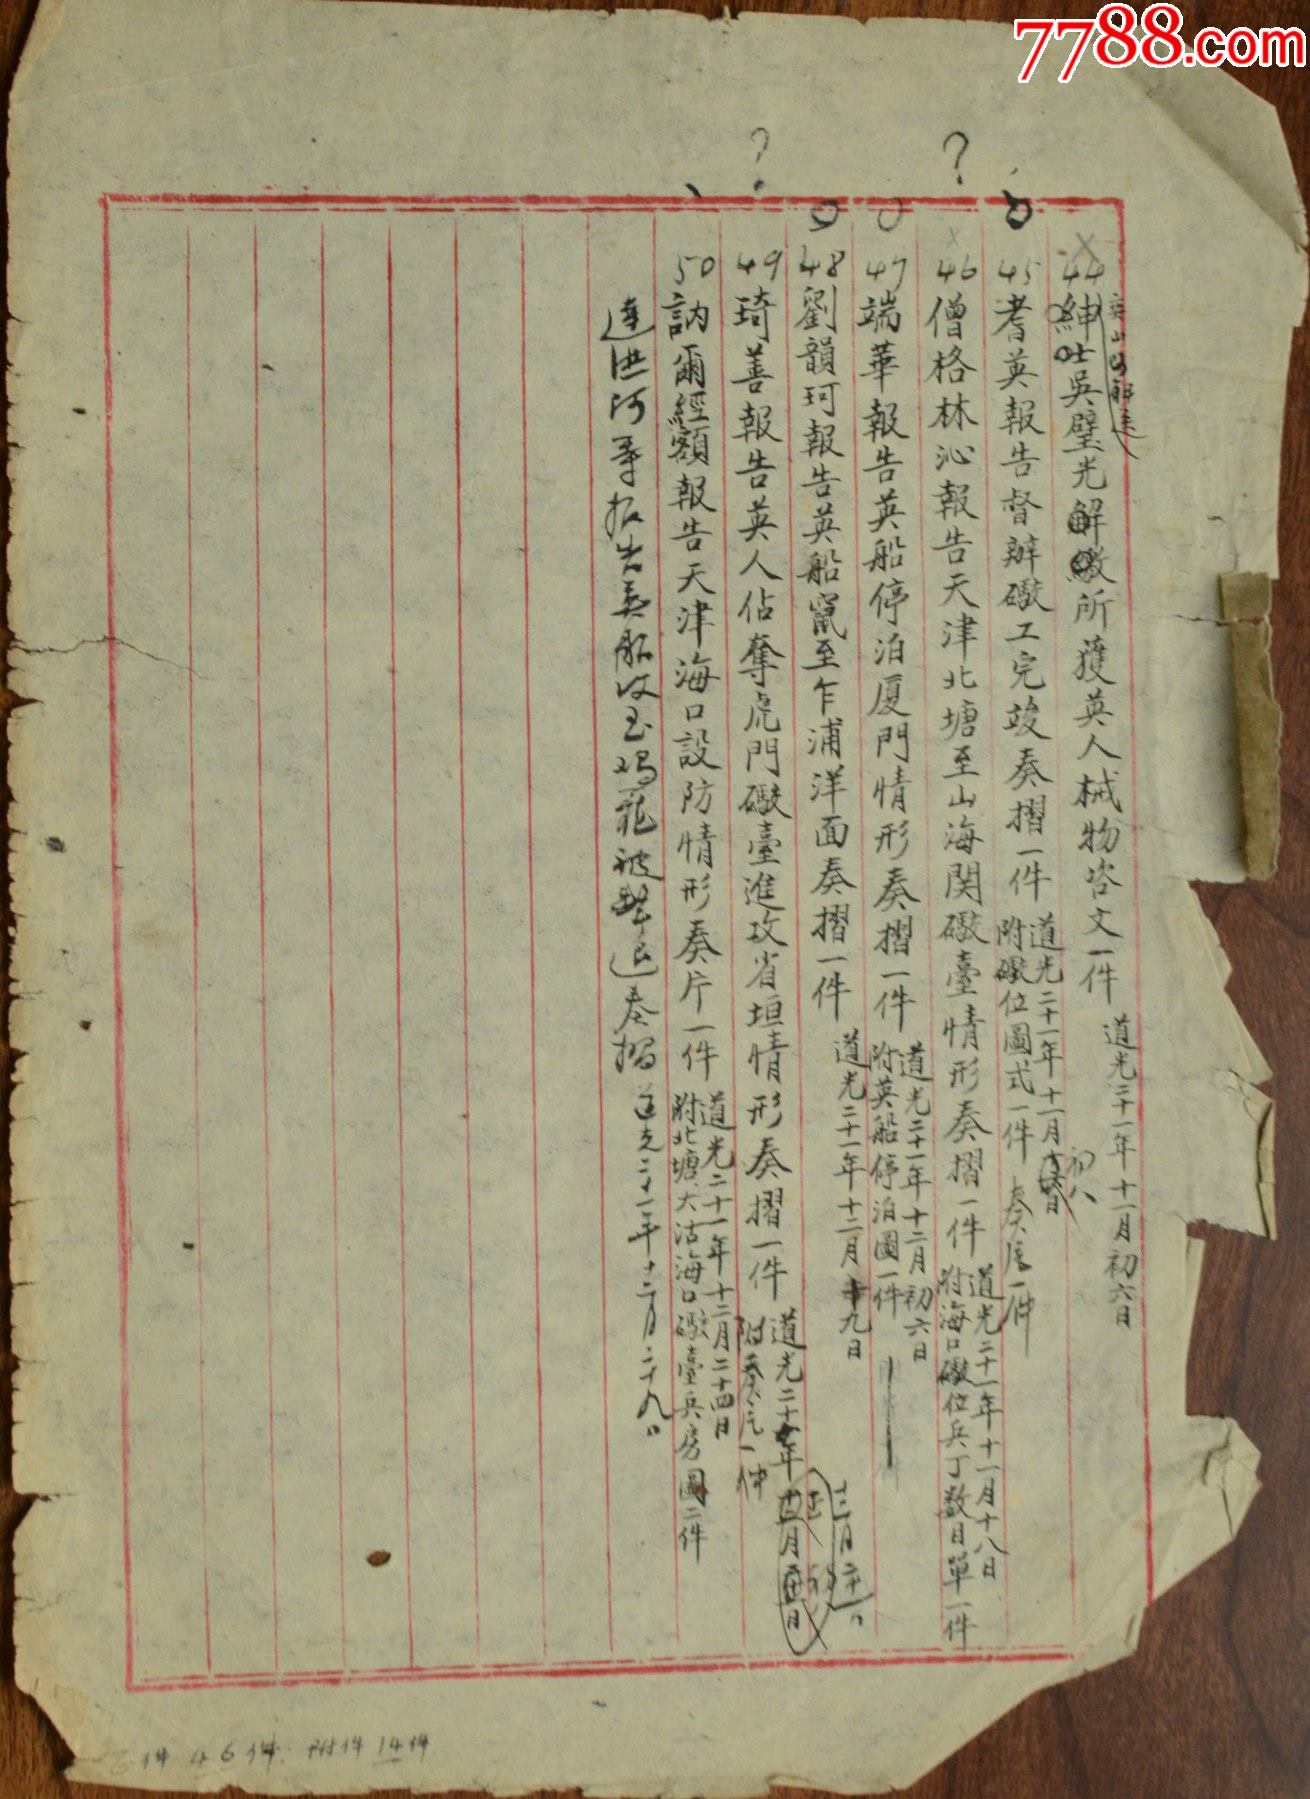 7788.com
? ?
44 紳士吳璧光解繳所獲英人械物咨文一件 道光二十一年十一月初六日
45 耆英報告督辦礮工完竣奏摺一件 道光二十一年十一月初八
附礮位圖式一件 奏片一件
46 僧格林沁報告天津北塘至山海関礮臺情形奏摺一件 道光二十一年十一月十八日
附海口礮位兵丁数目單一件
47 端華報告英船停泊厦門情形奏摺一件 道光二十一年十二月初六日
附英船停泊圖一件
48 劉韻珂報告英船竄至乍浦洋面奏摺一件 道光二十一年十二月十九日
49 琦善報告英人佔奪虎門礮臺進攻省垣情形奏摺一件 道光二十年
附奏片一件
50 訥爾經額報告天津海口設防情形奏片一件 道光二十一年十二月二十四日
附北塘、大沽海口礮臺兵房圖二件
達洪阿等报告英船攻至鸡籠被擊退奏摺 道光二十一年十二月二十九日
件 46件. 附件 14件